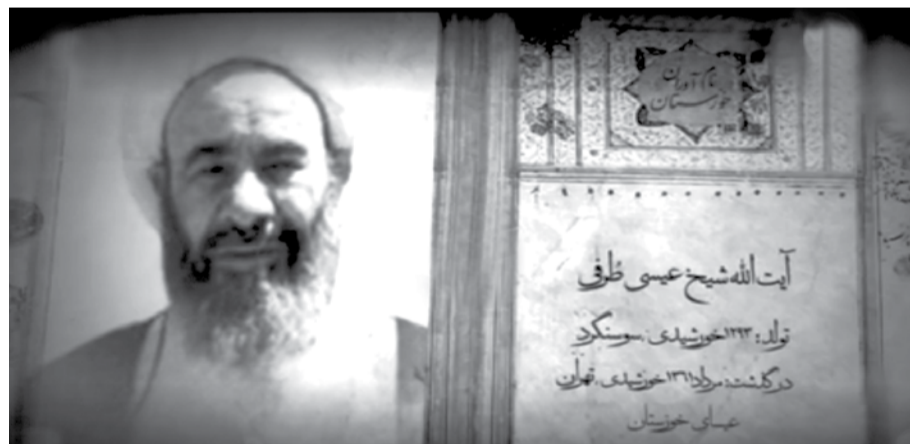 نام آوران
خوزستان
آیت الله شیخ عیسی طُرفی
تولد: ۱۲۹۳ خورشیدی. سوسنگرد
درگذشت: مرداد ۱۳۶۱ خورشیدی. تهران
عیسای خوزستان